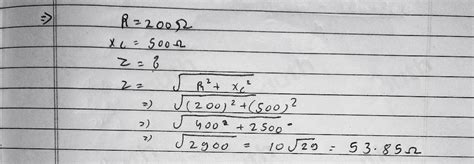 ⇒ R = 200Ω
XL = 500Ω
Z = ?
Z = √R² + XL²
⇒ √(200)² + (500)²
⇒ √400² + 2500
⇒ √2900 = 10√29 = 53.85Ω